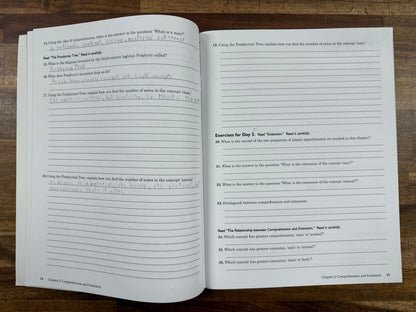 14. Using the idea of comprehension, what is the answer to the question "What is a man?"
a rational, sentient, living, material substance
Read "The Porphyrian Tree." Read it carefully.
15. What is the diagram invented by the third-century logician Porphyry called?
Porphyrian Tree
16. What does Porphyry's invention help us do?
Break down complex concepts into simple concepts
17. Using the Porphyrian Tree, explain how you find the number of notes in the concept 'chair.'
18. Using the Porphyrian Tree, explain how you find the number of notes in the concept 'animal.'
14 Chapter 2: Comprehension and Extension
19. Using the Porphyrian Tree, explain how you find the number of notes in the concept 'man.'
Exercises for Day 3. Read "Extension." Read it carefully.
20. What is the second of the two properties of simple apprehension we studied in this chapter?
21. What is the answer to the question "What is the extension of the concept 'man'?"
22. What is the answer to the question "What is the extension of the concept 'animal'?"
23. Distinguish between comprehension and extension.
Read "The Relationship between Comprehension and Extension." Read it carefully.
24. Which concept has greater comprehension, 'man' or 'animal'?
25. Which concept has greater extension, 'man' or 'animal'?
26. Which concept has greater extension, 'man' or 'body'?
Chapter 2: Comprehension and Extension 15